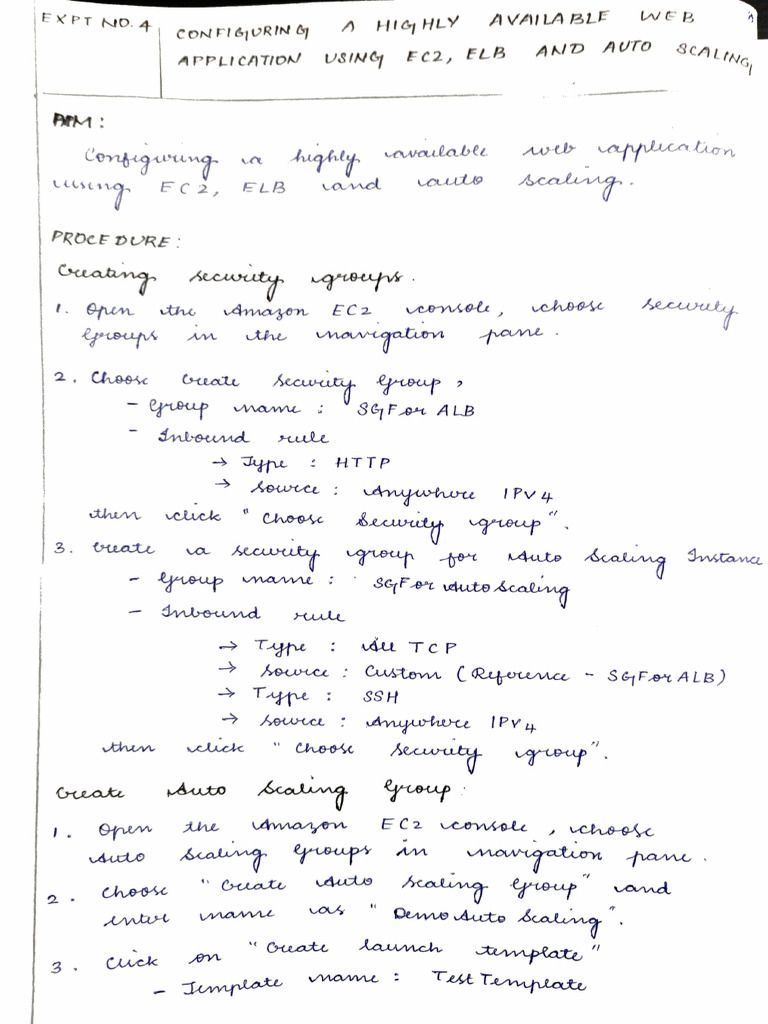 EXPT NO. 4
CONFIGURING A HIGHLY AVAILABLE WEB
APPLICATION USING EC2, ELB AND AUTO SCALING
AIM:
Configuring a highly available web application
using EC2, ELB and auto scaling.
PROCEDURE:
Creating security groups.
1. Open the Amazon EC2 console, choose security
Groups in the navigation pane.
2. Choose Create Security Group,
- Group name : SGForALB
- Inbound rule
→ Type : HTTP
→ Source : Anywhere IPV4
then click "Choose Security group".
3. Create a security group for Auto Scaling Instance
- Group name : SGForAutoScaling
- Inbound rule
→ Type : All TCP
→ Source : Custom (Reference - SGForALB)
→ Type : SSH
→ Source : Anywhere IPV4
then click "Choose Security group".
Create Auto Scaling Group:
1. Open the Amazon EC2 console, choose
Auto Scaling Groups in navigation pane.
2. Choose "Create Auto Scaling Group" and
enter name as "DemoAuto Scaling".
3. Click on "Create launch template"
- Template name : TestTemplate